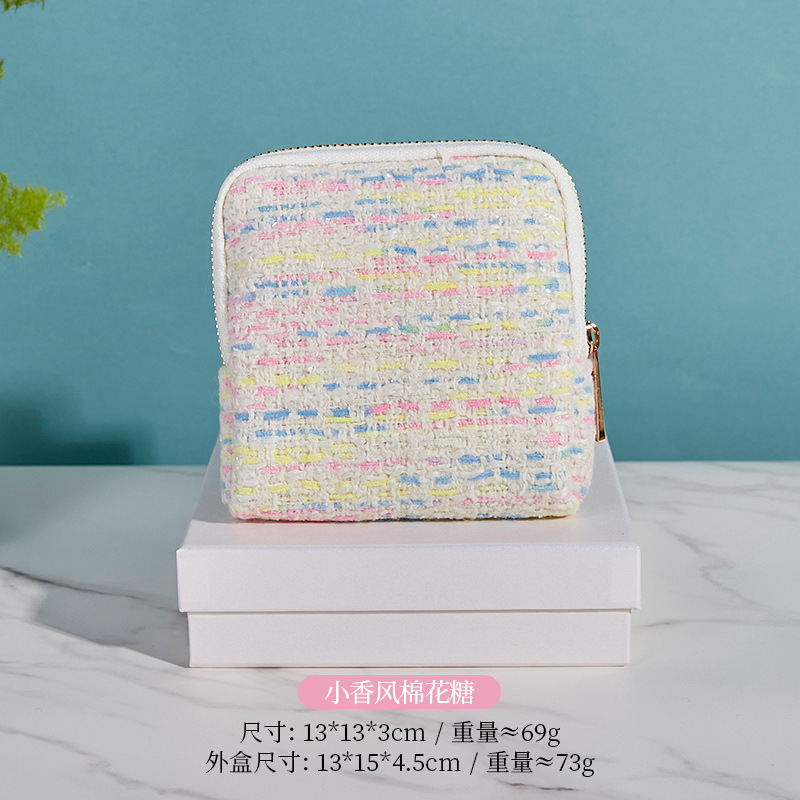 小香风棉花糖
尺寸: 13*13*3cm / 重量≈69g
外盒尺寸: 13*15*4.5cm / 重量≈73g